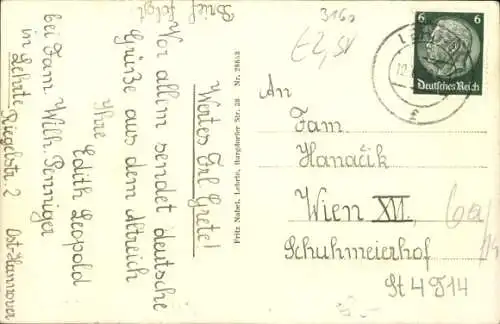 Brief
folgt
Wertes Frl. Grete!
Vor allem sendet deutsche
Grüße aus dem Altreich
Ihre
Edith Leopold
bei Fam. Wilh. Penniger
in Lehrte
Riegelstr. 2
Ost-Hannover
Fritz Nabel, Lehrte, Burgdorfer Str. 28 Nr. 28653
3160
€2,50
6 6
Deutsches Reich
An
Fam.
Hanačik
Wien XVI.
Schuhmeierhof
St 4 T 14